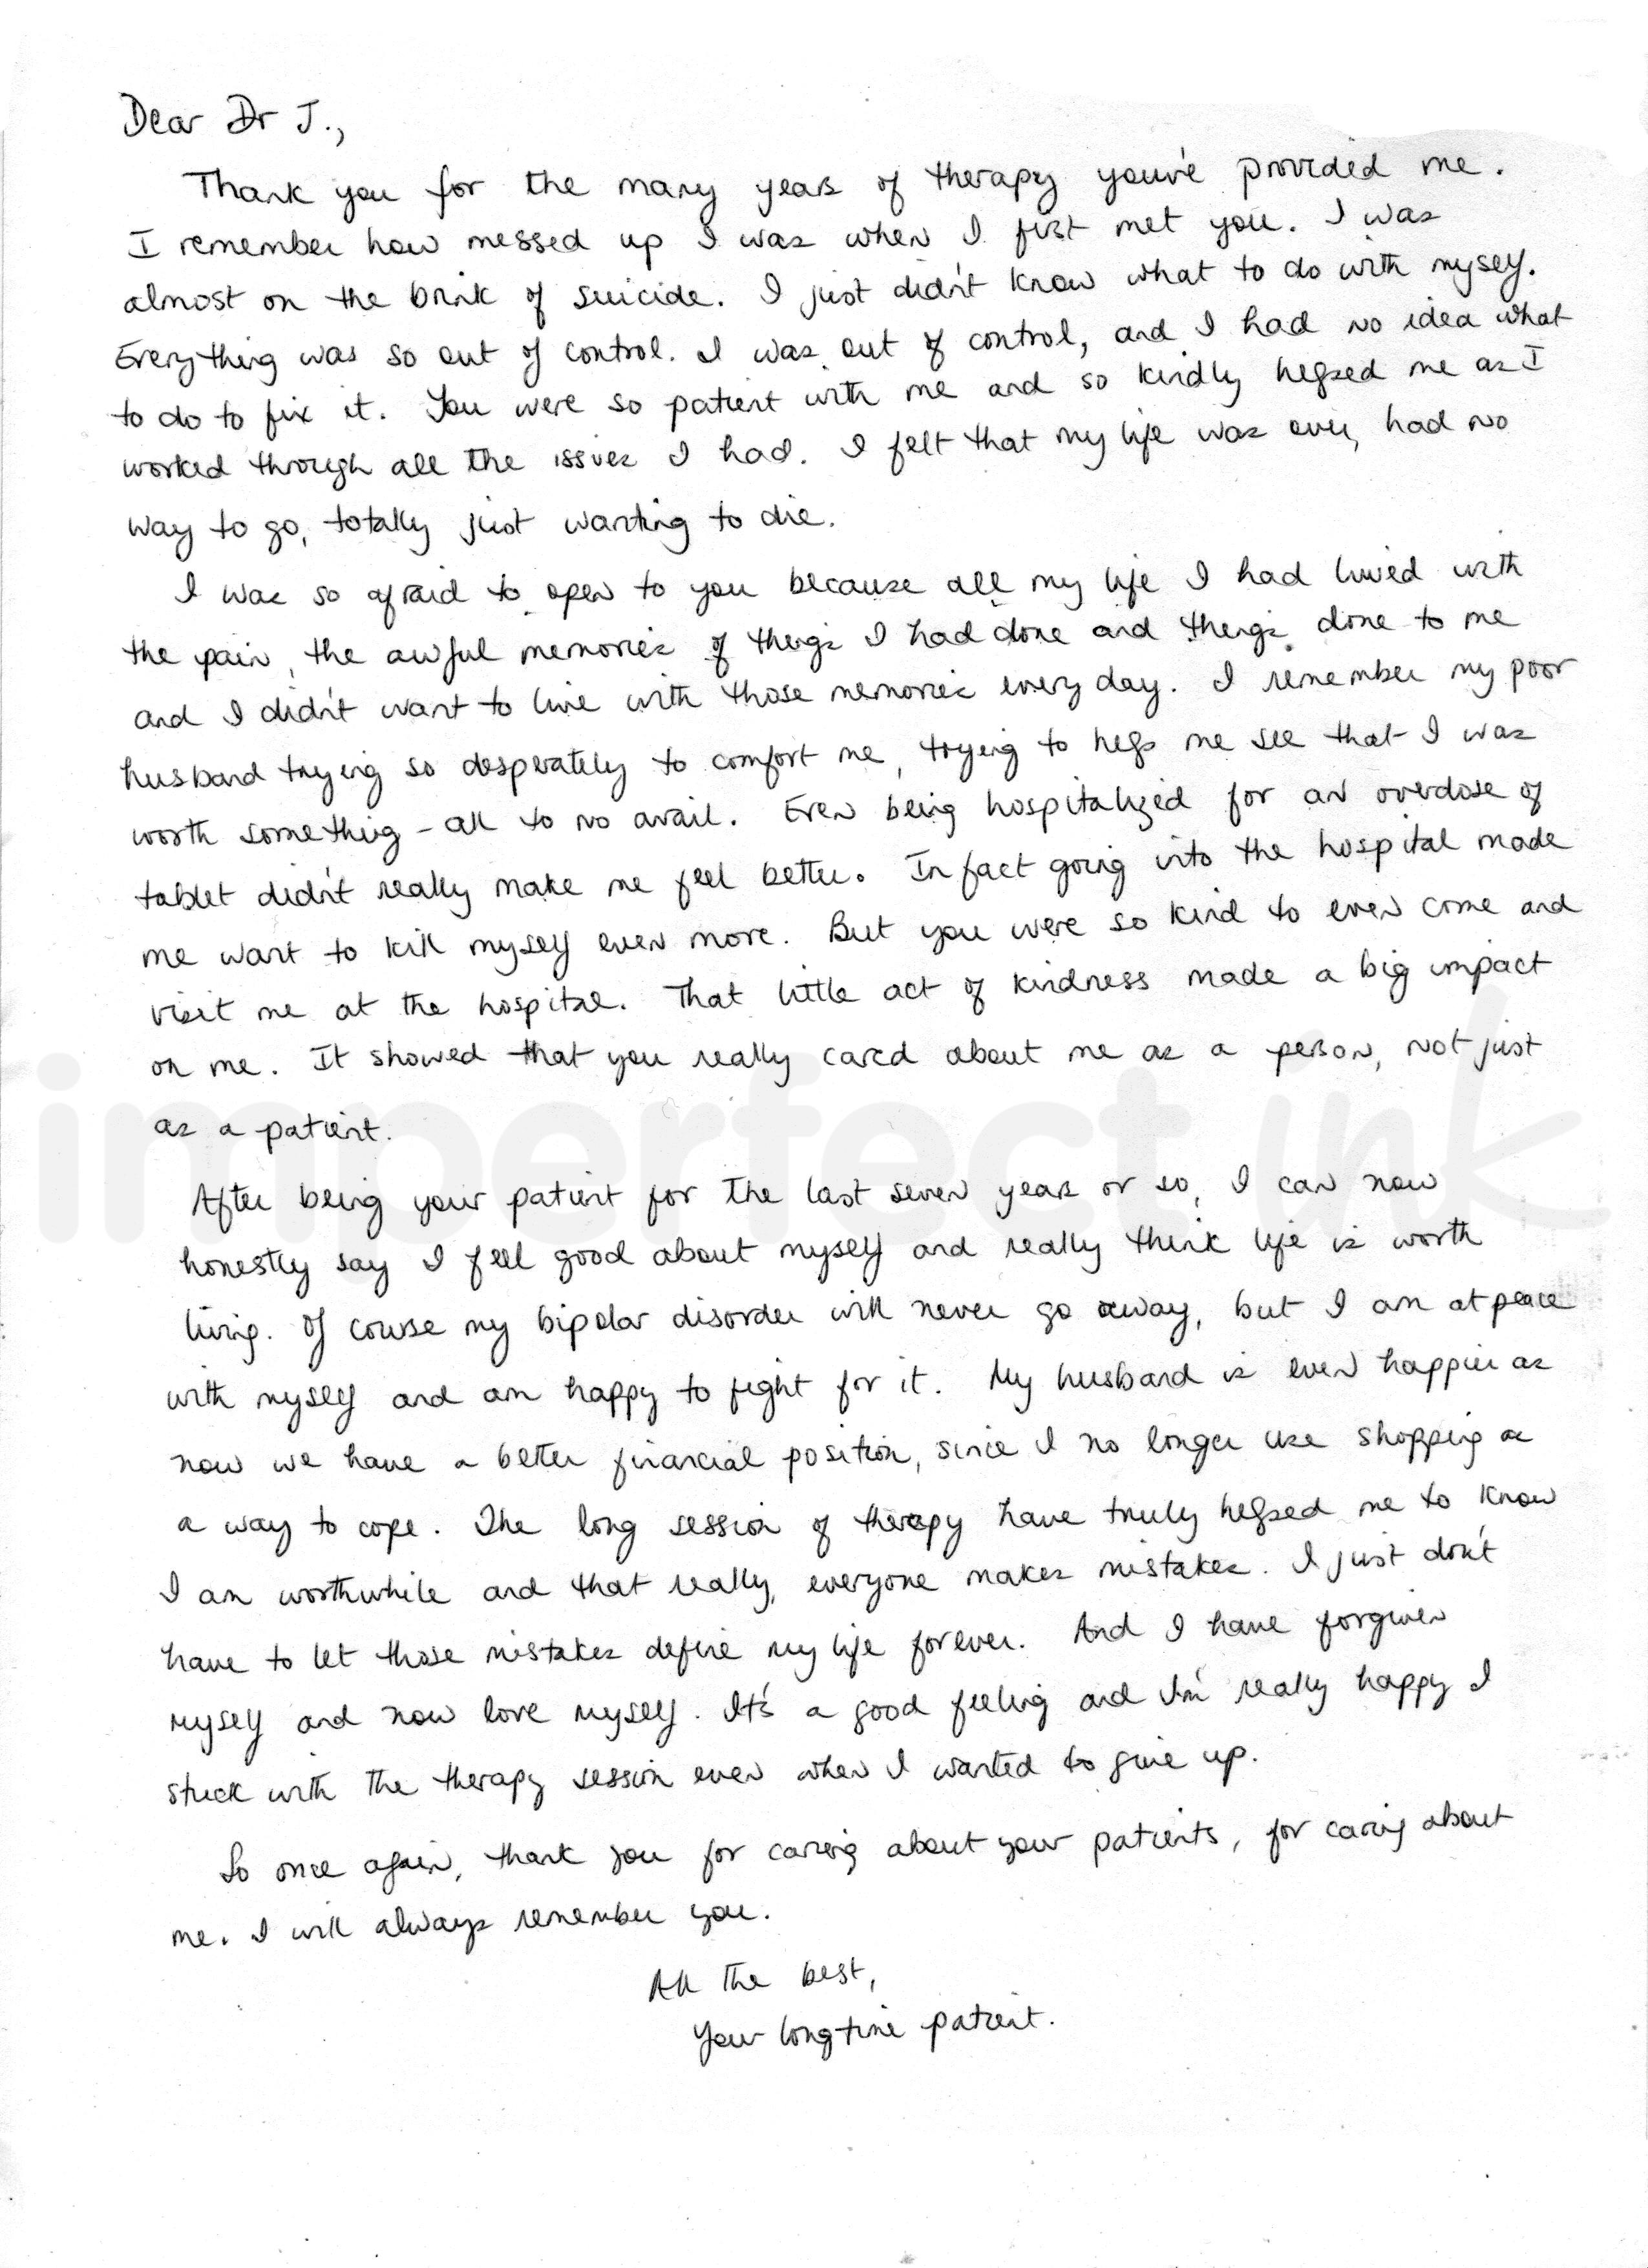 Dear Dr J.,
Thank you for the many years of therapy you've provided me.
I remember how messed up I was when I first met you. I was
almost on the brink of suicide. I just didn't know what to do with myself.
Everything was so out of control. I was out of control, and I had no idea what
to do to fix it. You were so patient with me and so kindly helped me as I
worked through all the issues I had. I felt that my life was over, had no
way to go, totally just wanting to die.
I was so afraid to open to you because all my life I had lived with
the pain, the awful memories of things I had done and things done to me
and I didn't want to live with those memories every day. I remember my poor
husband trying so desperately to comfort me, trying to help me see that I was
worth something - all to no avail. Even being hospitalized for an overdose of
tablet didn't really make me feel better. In fact going into the hospital made
me want to kill myself even more. But you were so kind to even come and
visit me at the hospital. That little act of kindness made a big impact
on me. It showed that you really cared about me as a person, not just
as a patient.
imperfect ink
After being your patient for the last seven years or so, I can now
honestly say I feel good about myself and really think life is worth
living. Of course my bipolar disorder will never go away, but I am at peace
with myself and am happy to fight for it. My husband is even happier as
now we have a better financial position, since I no longer use shopping as
a way to cope. The long session of therapy have truly helped me to know
I am worthwhile and that really, everyone makes mistakes. I just don't
have to let those mistakes define my life forever. And I have forgiven
myself and now love myself. It's a good feeling and I'm really happy I
stuck with the therapy session even when I wanted to give up.
So once again, thank you for caring about your patients, for caring about
me. I will always remember you.
All the best,
Your longtime patient.